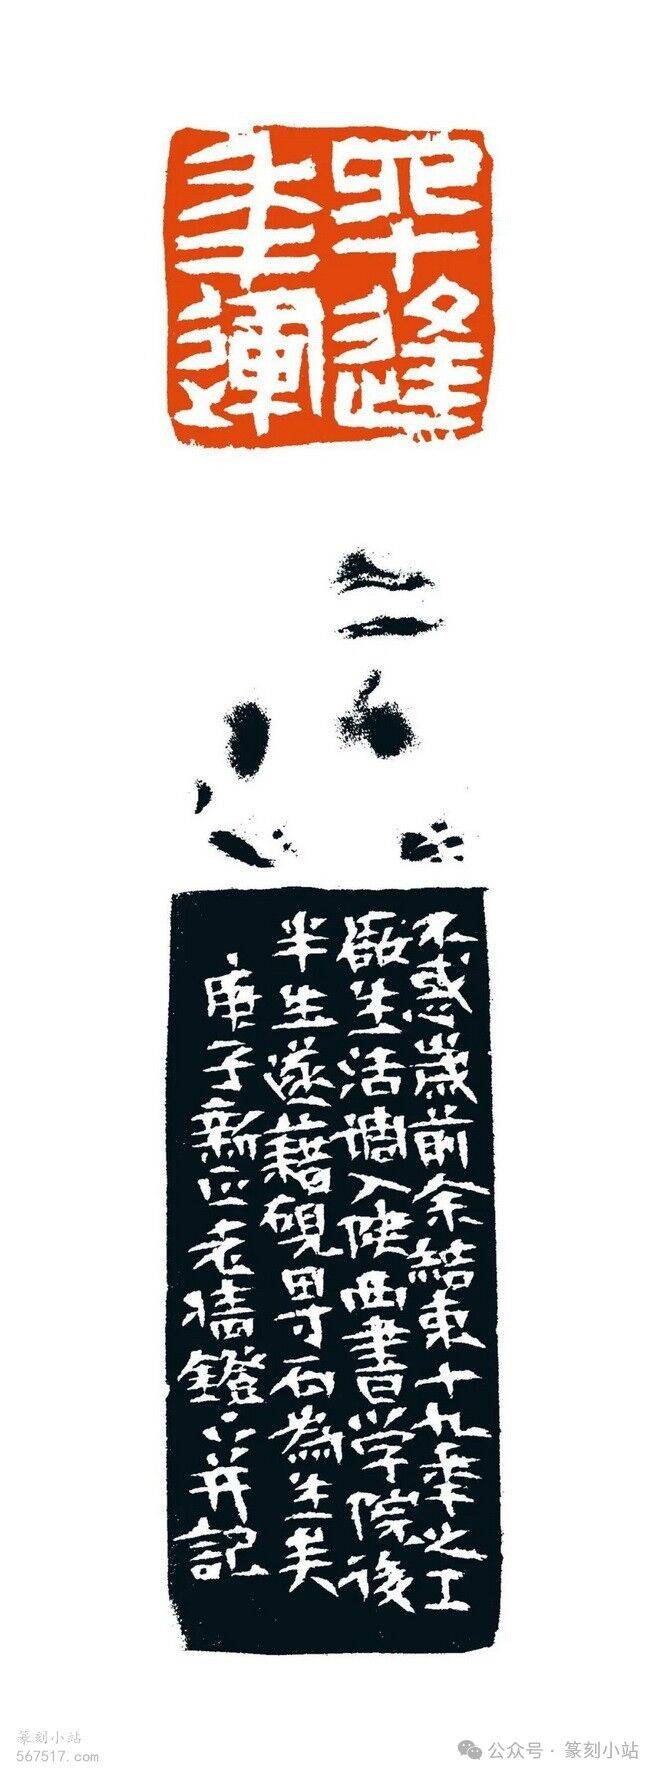 四十逢
年運
不惑歲前余結束十九年之工
廠生活調入陝西書学院後
半生遂藉硯田寸石為生矣
庚子新正老鐙下并記
篆刻小站
567517.com
公众号·篆刻小站